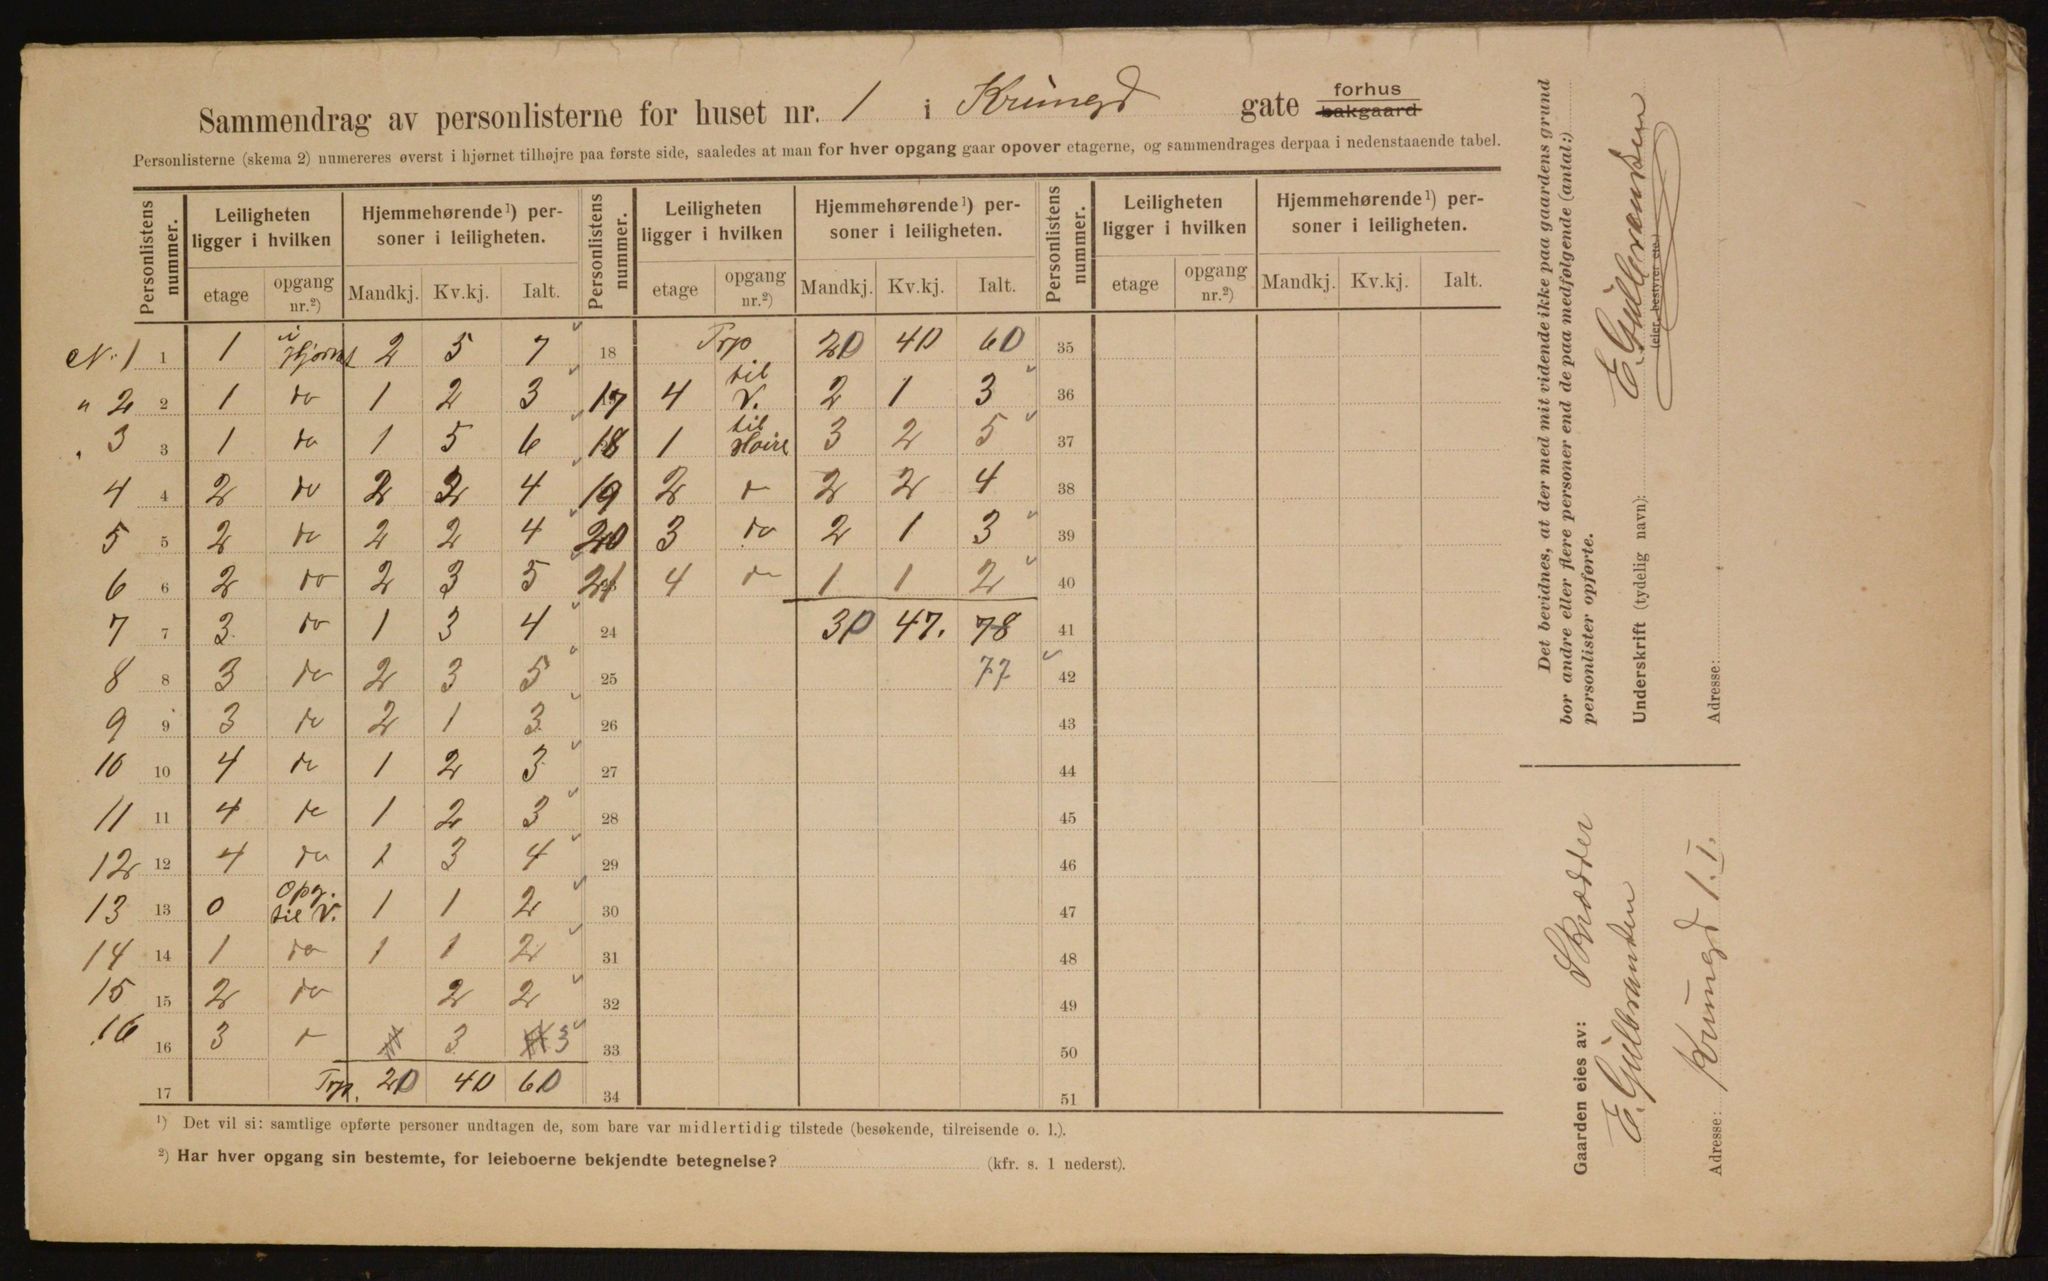 Sammendrag av personlisterne for huset nr. 1 i Krumgd gate forhus bakgaard
Personlisterne (skema 2) numereres øverst i hjørnet tilhøjre paa første side, saaledes at man for hver opgang gaar opover etagerne, og sammendrages derpaa i nedenstaaende tabel.
Personlistens nummer. Leiligheten ligger i hvilken Hjemmehørende¹) personer i leiligheten. Personlistens nummer. Leiligheten ligger i hvilken Hjemmehørende¹) personer i leiligheten. Personlistens nummer. Leiligheten ligger i hvilken Hjemmehørende¹) personer i leiligheten.
etage opgang nr.²) Mandkj. Kv.kj. Ialt. etage opgang nr.²) Mandkj. Kv.kj. Ialt. etage opgang nr.²) Mandkj. Kv.kj. Ialt.
No 1 1 1 i Hjørnet 2 5 7 18 Trp 20 40 60 35
" 2 2 1 do 1 2 3 17 4 til V. 2 1 3 36
" 3 3 1 do 1 5 6 18 1 til Høire 3 2 5 37
4 4 2 do 2 2 4 19 2 " 2 2 4 38
5 5 2 do 2 2 4 20 3 do 2 1 3 39
6 6 2 do 2 3 5 21 4 do 1 1 2 40
7 7 3 do 1 3 4 24 30 47. 78 41
8 8 3 do 2 3 5 25 77 42
9 9 3 do 2 1 3 26 43
10 10 4 do 1 2 3 27 44
11 11 4 do 1 2 3 28 45
12 12 4 do 1 3 4 29 46
13 13 0 Opg. til V. 1 1 2 30 47
14 14 1 do 1 1 2 31 48
15 15 2 do 2 2 32 49
16 16 3 " 3 3 33 50
17 Trp. 20 40 60 34 51
¹) Det vil si: samtlige opførte personer undtagen de, som bare var midlertidig tilstede (besøkende, tilreisende o. l.).
²) Har hver opgang sin bestemte, for leieboerne bekjendte betegnelse? (kfr. s. 1 nederst).
Det bevidnes, at der med mit vidende ikke paa gaardens grund
bor andre eller flere personer end de paa medfølgende (antal:)
personlister opførte.
Underskrift (tydelig navn): E. Gulbrandsen
(eier, bestyrer etc.)
Adresse:
Gaarden eies av: Skrædder
E. Gulbrandsen
Adresse: Krumgd 1. I.